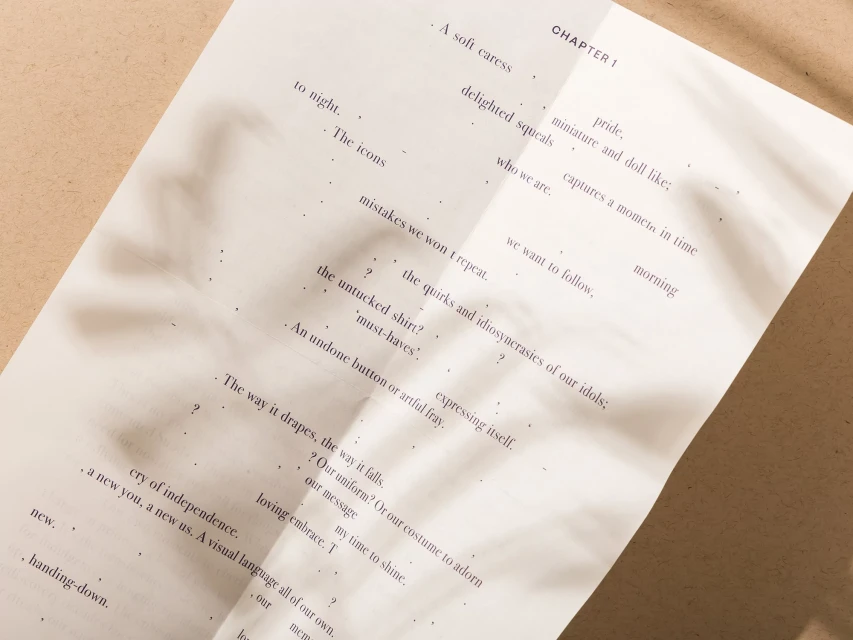 CHAPTER 1
. A soft caress ,
pride,
delighted squeals , miniature and doll like;
to night. ,
. The icons who we are. captures a moment in time
mistakes we won t repeat. we want to follow, morning
? , the quirks and idiosyncrasies of our idols;
the untucked shirt?
'must-haves'. ?
. An undone button or artful fray. expressing itself.
. The way it drapes, the way it falls.
? ? Our uniform? Or our costume to adorn
our message
cry of independence. loving embrace. T my time to shine.
, a new you, a new us. A visual language all of our own.
new. , ?
, our
, handing-down.